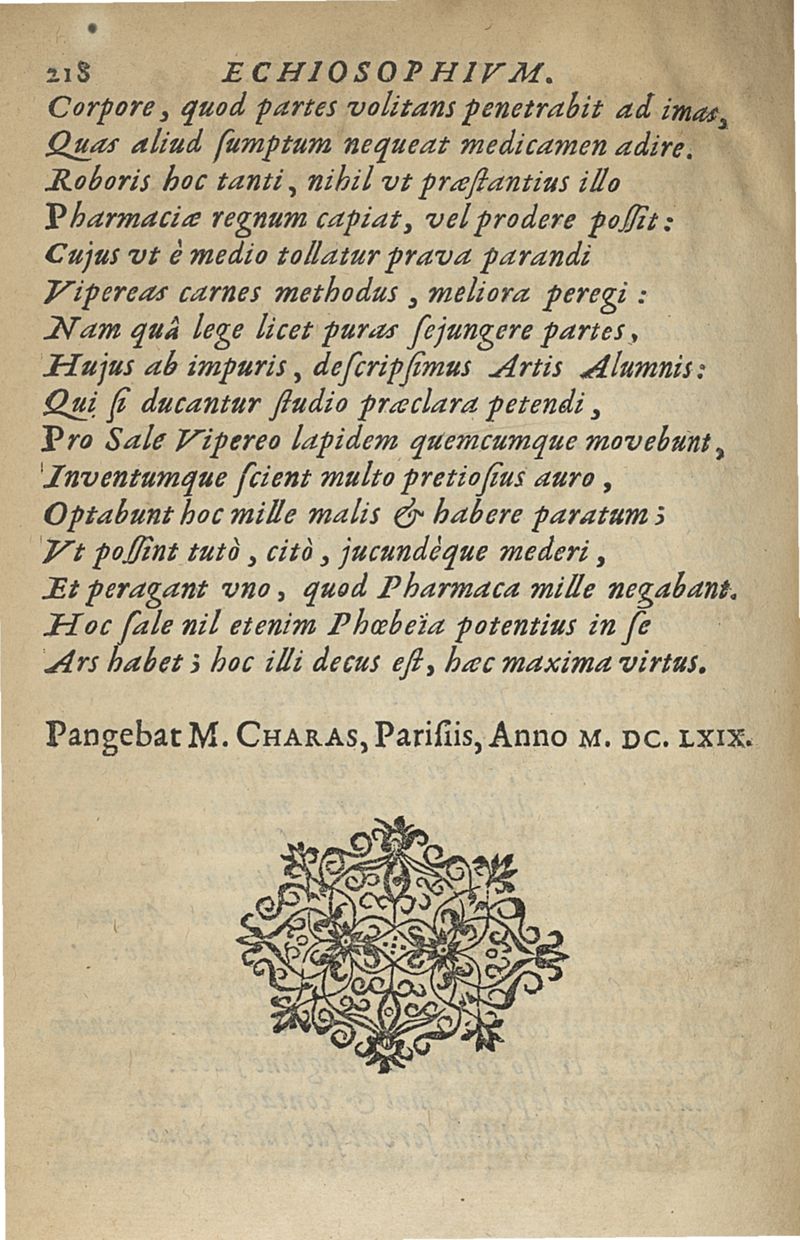 218 ECHIOSOPHIVM.
Corpore, quod partes volitans penetrabit ad imas,
Quas aliud ſumptum nequeat medicamen adire.
Roboris hoc tanti, nihil vt præſtantius illo
Pharmaciæ regnum capiat, vel prodere poſſit:
Cujus vt è medio tollatur prava parandi
Vipereas carnes methodus, meliora peregi:
Nam quâ lege licet puras ſejungere partes,
Hujus ab impuris, deſcripſimus Artis Alumnis:
Qui ſi ducantur ſtudio præclara petendi,
Pro Sale Vipereo lapidem quemcumque movebunt,
Inventumque ſcient multo pretioſius auro,
Optabunt hoc mille malis & habere paratum;
Vt poſſint tutò, citò, jucundèque mederi,
Et peragant vno, quod Pharmaca mille negabant.
Hoc ſale nil etenim Phœbeïa potentius in ſe
Ars habet; hoc illi decus eſt, hæc maxima virtus.
Pangebat M. CHARAS, Pariſiis, Anno M. DC. LXIX.